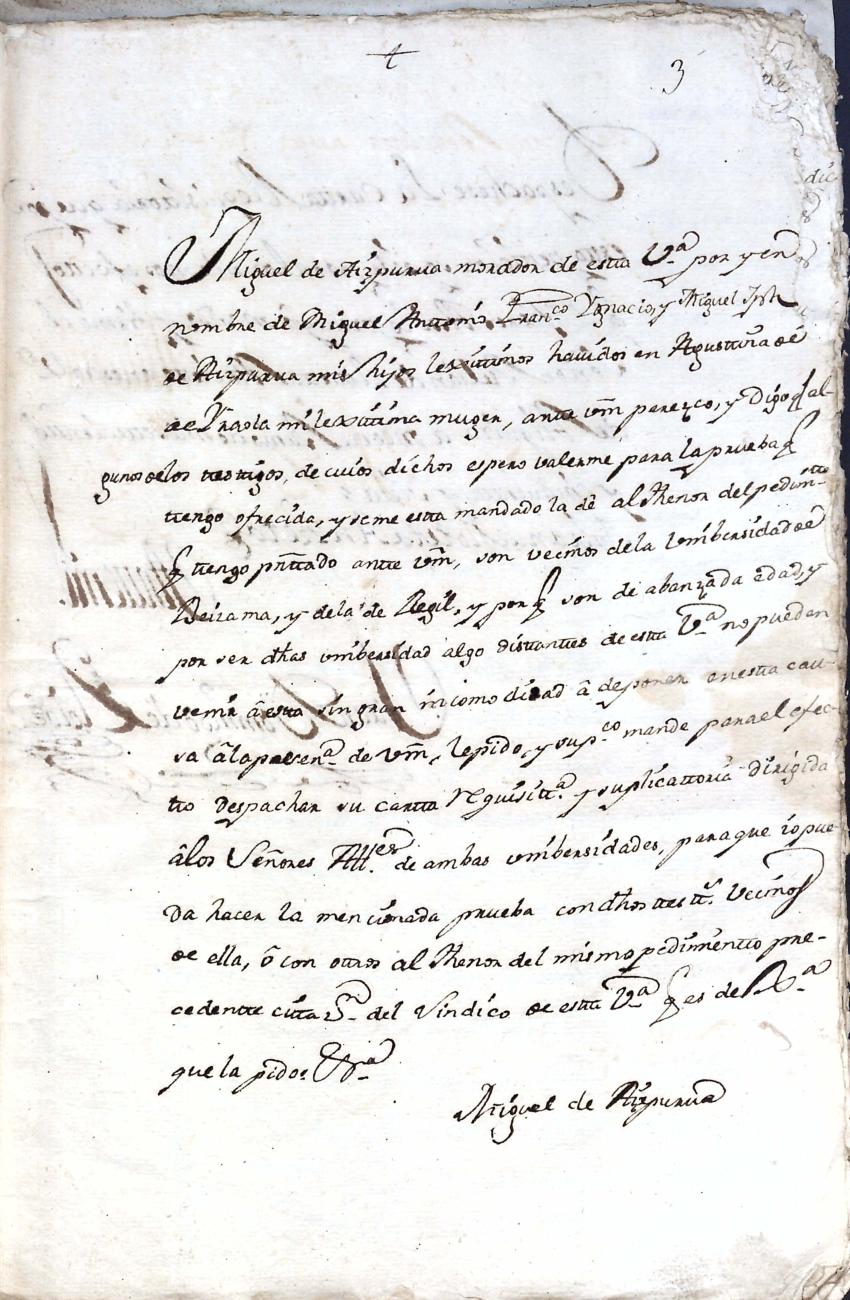 +
3
Miguel de Aizpurua morador de esta V.a por y en
nombre de Miguel Antonio, Fran.co Ygnacio, y Miguel Jph
de Aizpurua mis hijos lexitimos havidos en Agustina de
de Yraola mi lexitima muger, ante vm parezco, y Digo q al-
gunos de los testigos, de cuios dichos espero valerme para la prueba q
tengo ofrecida, y se me esta mandado la dè al thenor del pedim.to
q tengo pñtado ante vm, son vecinos de la vnibersidad de
Beizama, y de la de Regil, y porq son de abanzada edad, y
por ser dhas vnibersidad algo distantes de esta V.a no pueden
venir â esta sin gran incomodidad â deponer en esta cau-
sa â la presen.a de vm, le pido, y sup.co mande para el efec-
to despachar su carta requisit.a y suplicattoria dirigida
âlos Señores All.es de ambas vnibersidades, para que io pue-
da hacer la mencionada prueba con dhos test.s vecinos
de ella, ô con otros al thenor del mismo pedimento pre-
cedente citta.n del Sindico de esta V.a q es de Jux.a
que la pido: &.a
Miguel de Aizpurua